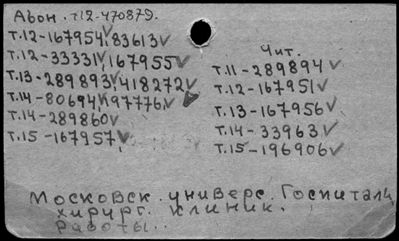 Абон. т12-470879.
т.12-167954√, 83613√
т.12-33331√, 167955√
т.13-289893√, 418272√
т.14-80694√, 97776√
т.14-289860√
т.15-167957√
Чит.
т.11-289894√
т.12-167951√
т.13-167956√
т.14-33963√
т.15-196906√
Московск. универс. Госпитал.
хирург. клиник.
Работы..